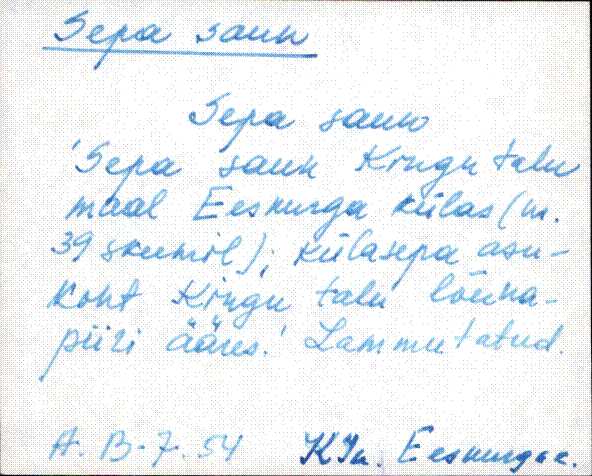 Sepa saun
Sepa saun
'Sepa saun Kingu talu
maal Eesnurga külas (nr.
39 skeemil); külasepa asu-
koht Kingu talu lõuna-
piiri ääres.' Lammutatud.
A. B-7. 54 KJn. Eesnurga k.